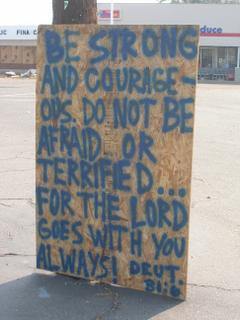 BE STRONG
AND COURAGE-
OUS. DO NOT BE
AFRAID OR
TERRIFIED...
FOR THE LORD
GOES WITH YOU
ALWAYS! DEUT.
duce